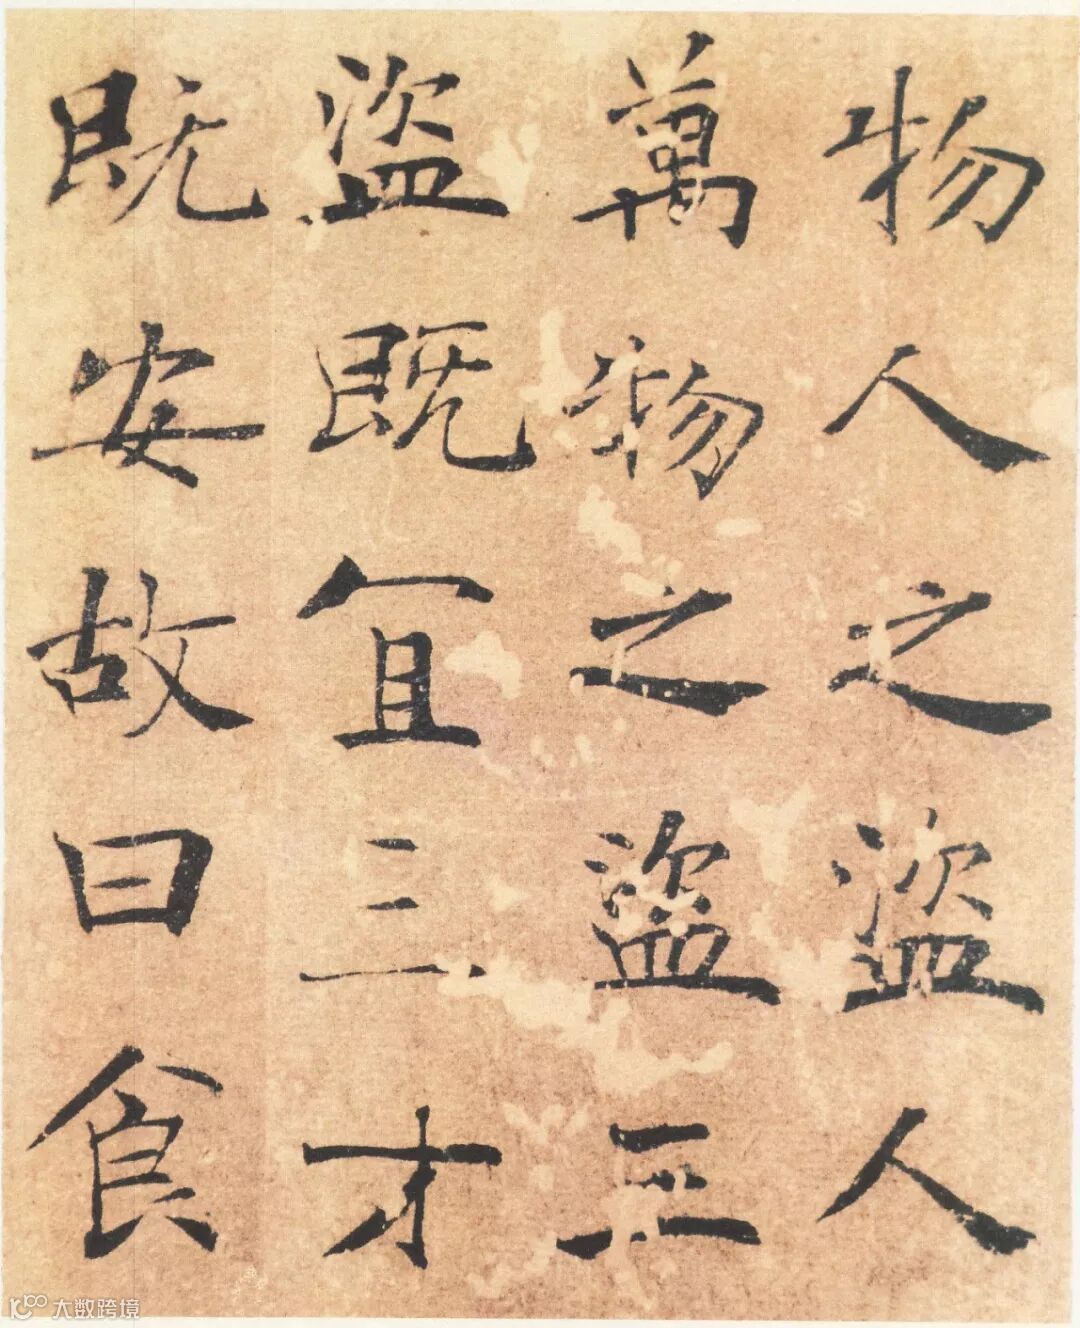 物人之盜人
萬物之盜三
盜既宜三才
既安故曰食
大数跨境